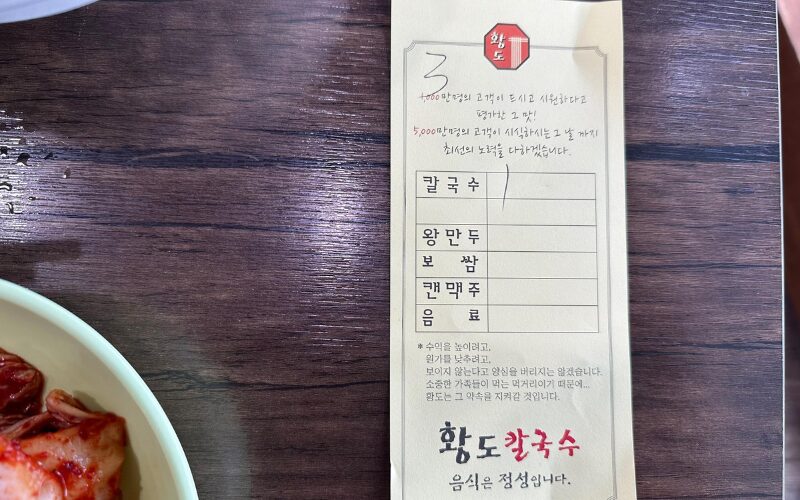 황
도
3
1,000만명의 고객이 드시고 시원하다고
평가한 그 맛!
5,000만명의 고객이 시식하시는 그 날 까지
최선의 노력을 다하겠습니다.
칼국수 1
왕만두
보쌈
캔맥주
음료
* 수익을 높이려고,
원가를 낮추려고,
보이지 않는다고 양심을 버리지는 않겠습니다.
소중한 가족들이 먹는 먹거리이기 때문에...
황도는 그 약속을 지켜갈 것입니다.
황도칼국수
음식은 정성입니다.